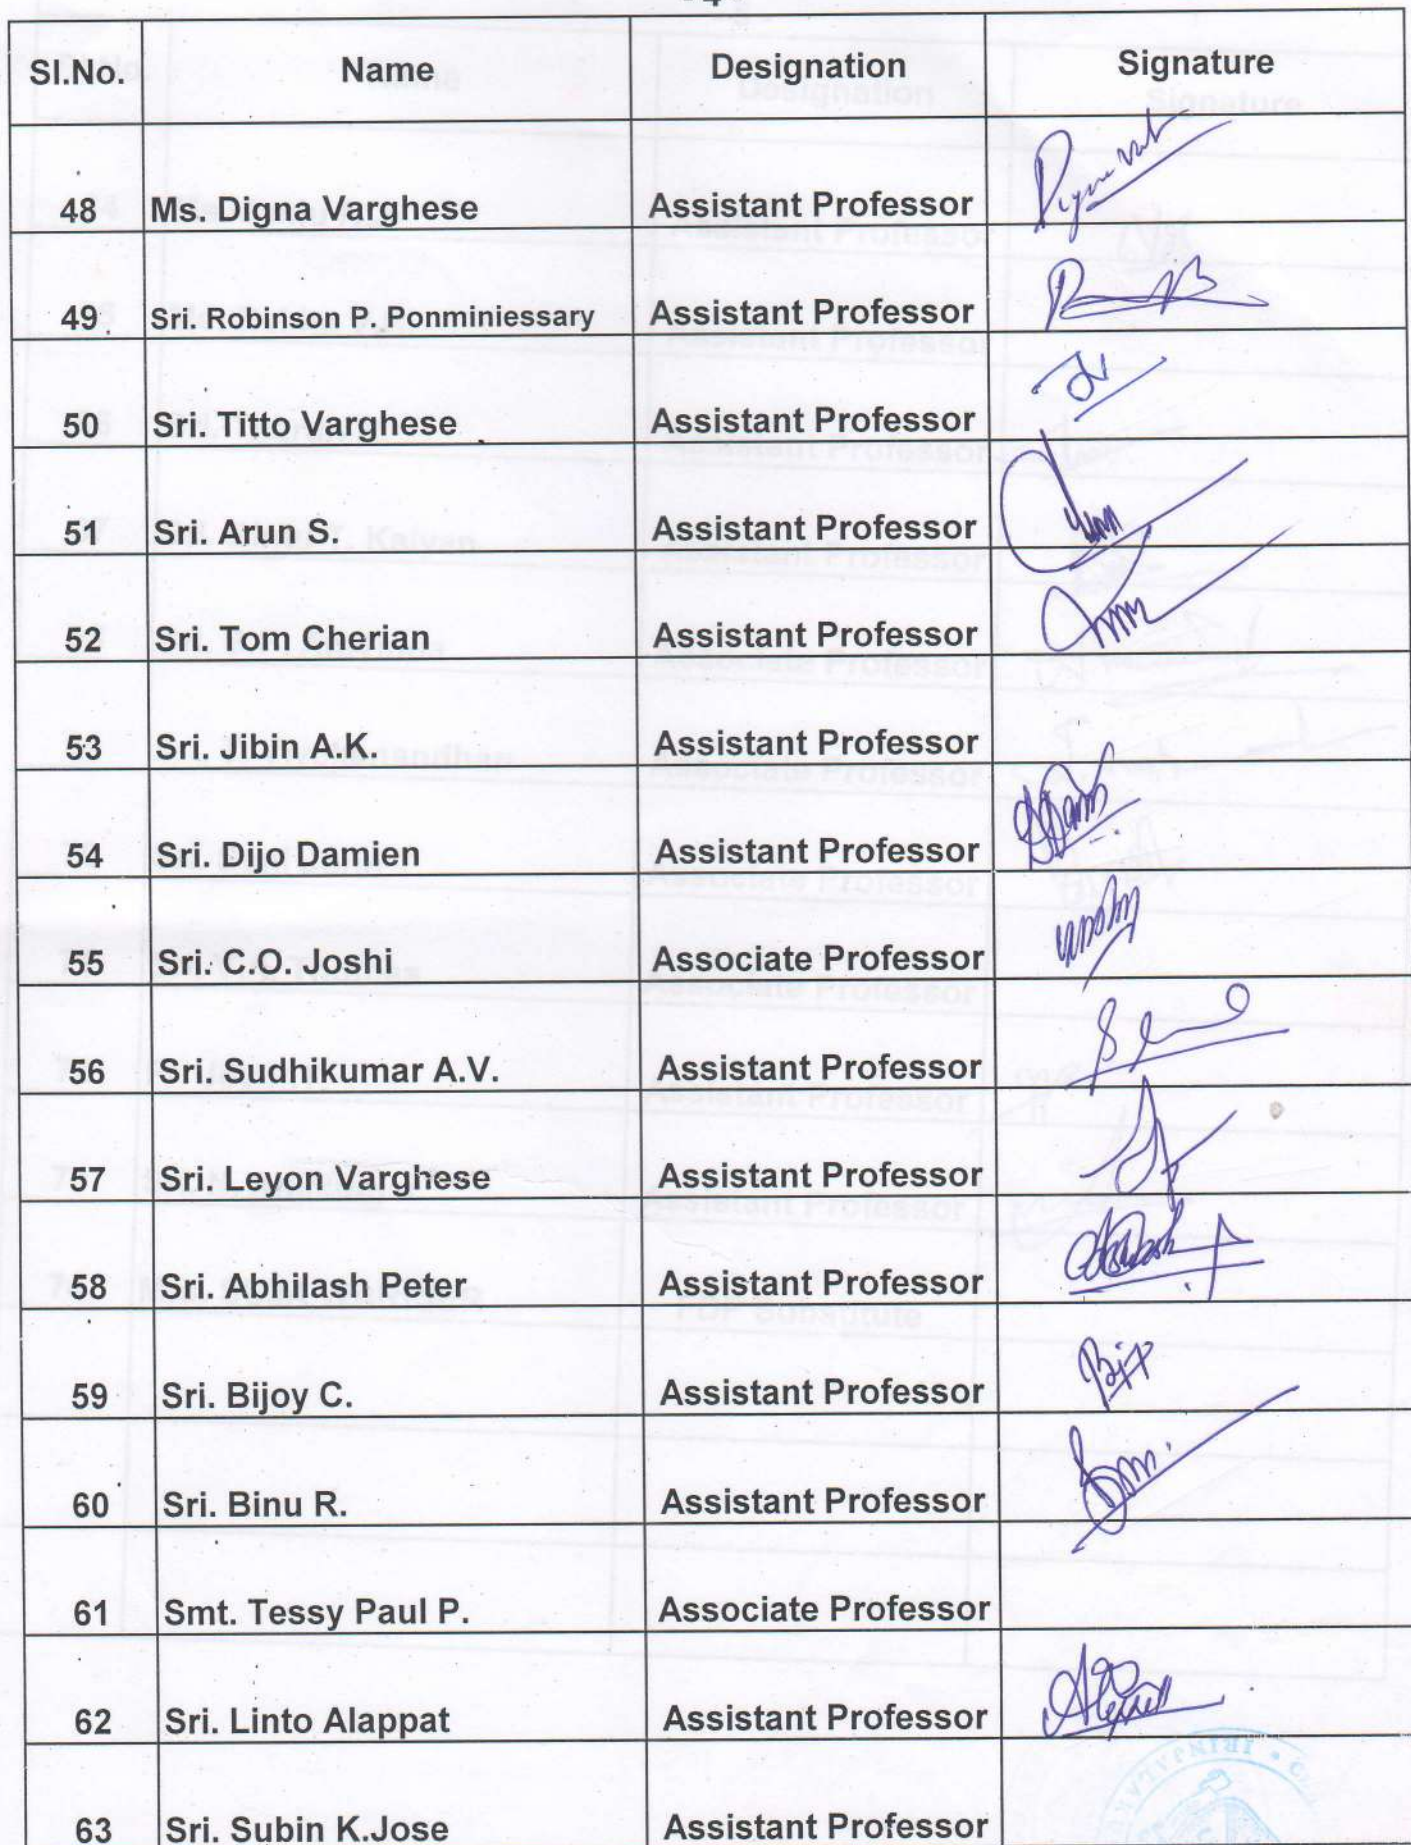 - 4 -
Sl.No. Name Designation Signature
48 Ms. Digna Varghese Assistant Professor
49 Sri. Robinson P. Ponminiessary Assistant Professor
50 Sri. Titto Varghese Assistant Professor
51 Sri. Arun S. Assistant Professor
52 Sri. Tom Cherian Assistant Professor
53 Sri. Jibin A.K. Assistant Professor
54 Sri. Dijo Damien Assistant Professor
55 Sri. C.O. Joshi Associate Professor
56 Sri. Sudhikumar A.V. Assistant Professor
57 Sri. Leyon Varghese Assistant Professor
58 Sri. Abhilash Peter Assistant Professor
59 Sri. Bijoy C. Assistant Professor
60 Sri. Binu R. Assistant Professor
61 Smt. Tessy Paul P. Associate Professor
62 Sri. Linto Alappat Assistant Professor
63 Sri. Subin K.Jose Assistant Professor